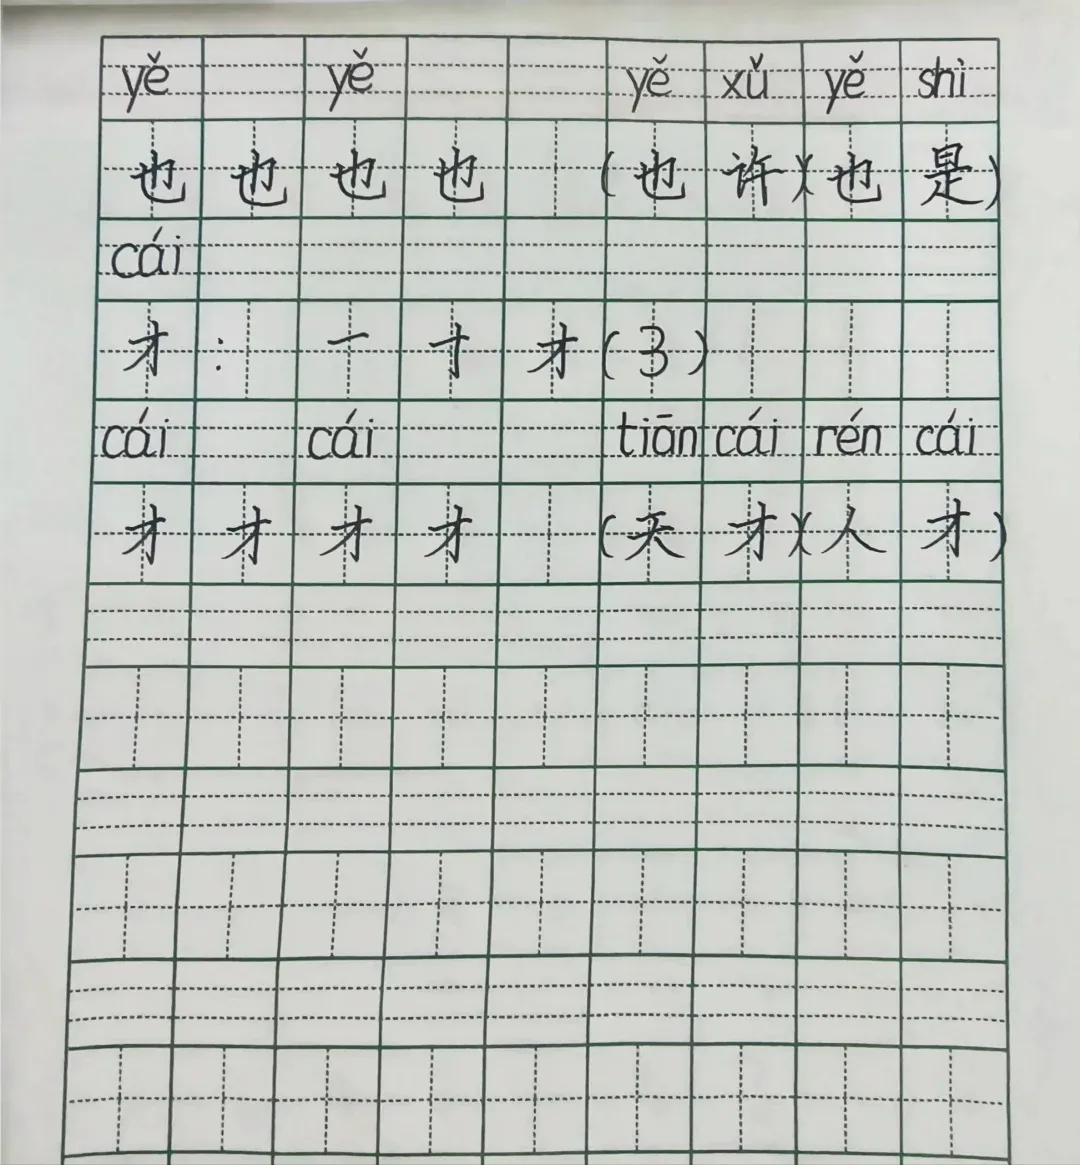 yě yě yě xǔ yě shì
也 也 也 也 (也 许)(也 是)
cái
才 : 一 十 才 (3)
cái cái tiān cái rén cái
才 才 才 才 (天 才)(人 才)